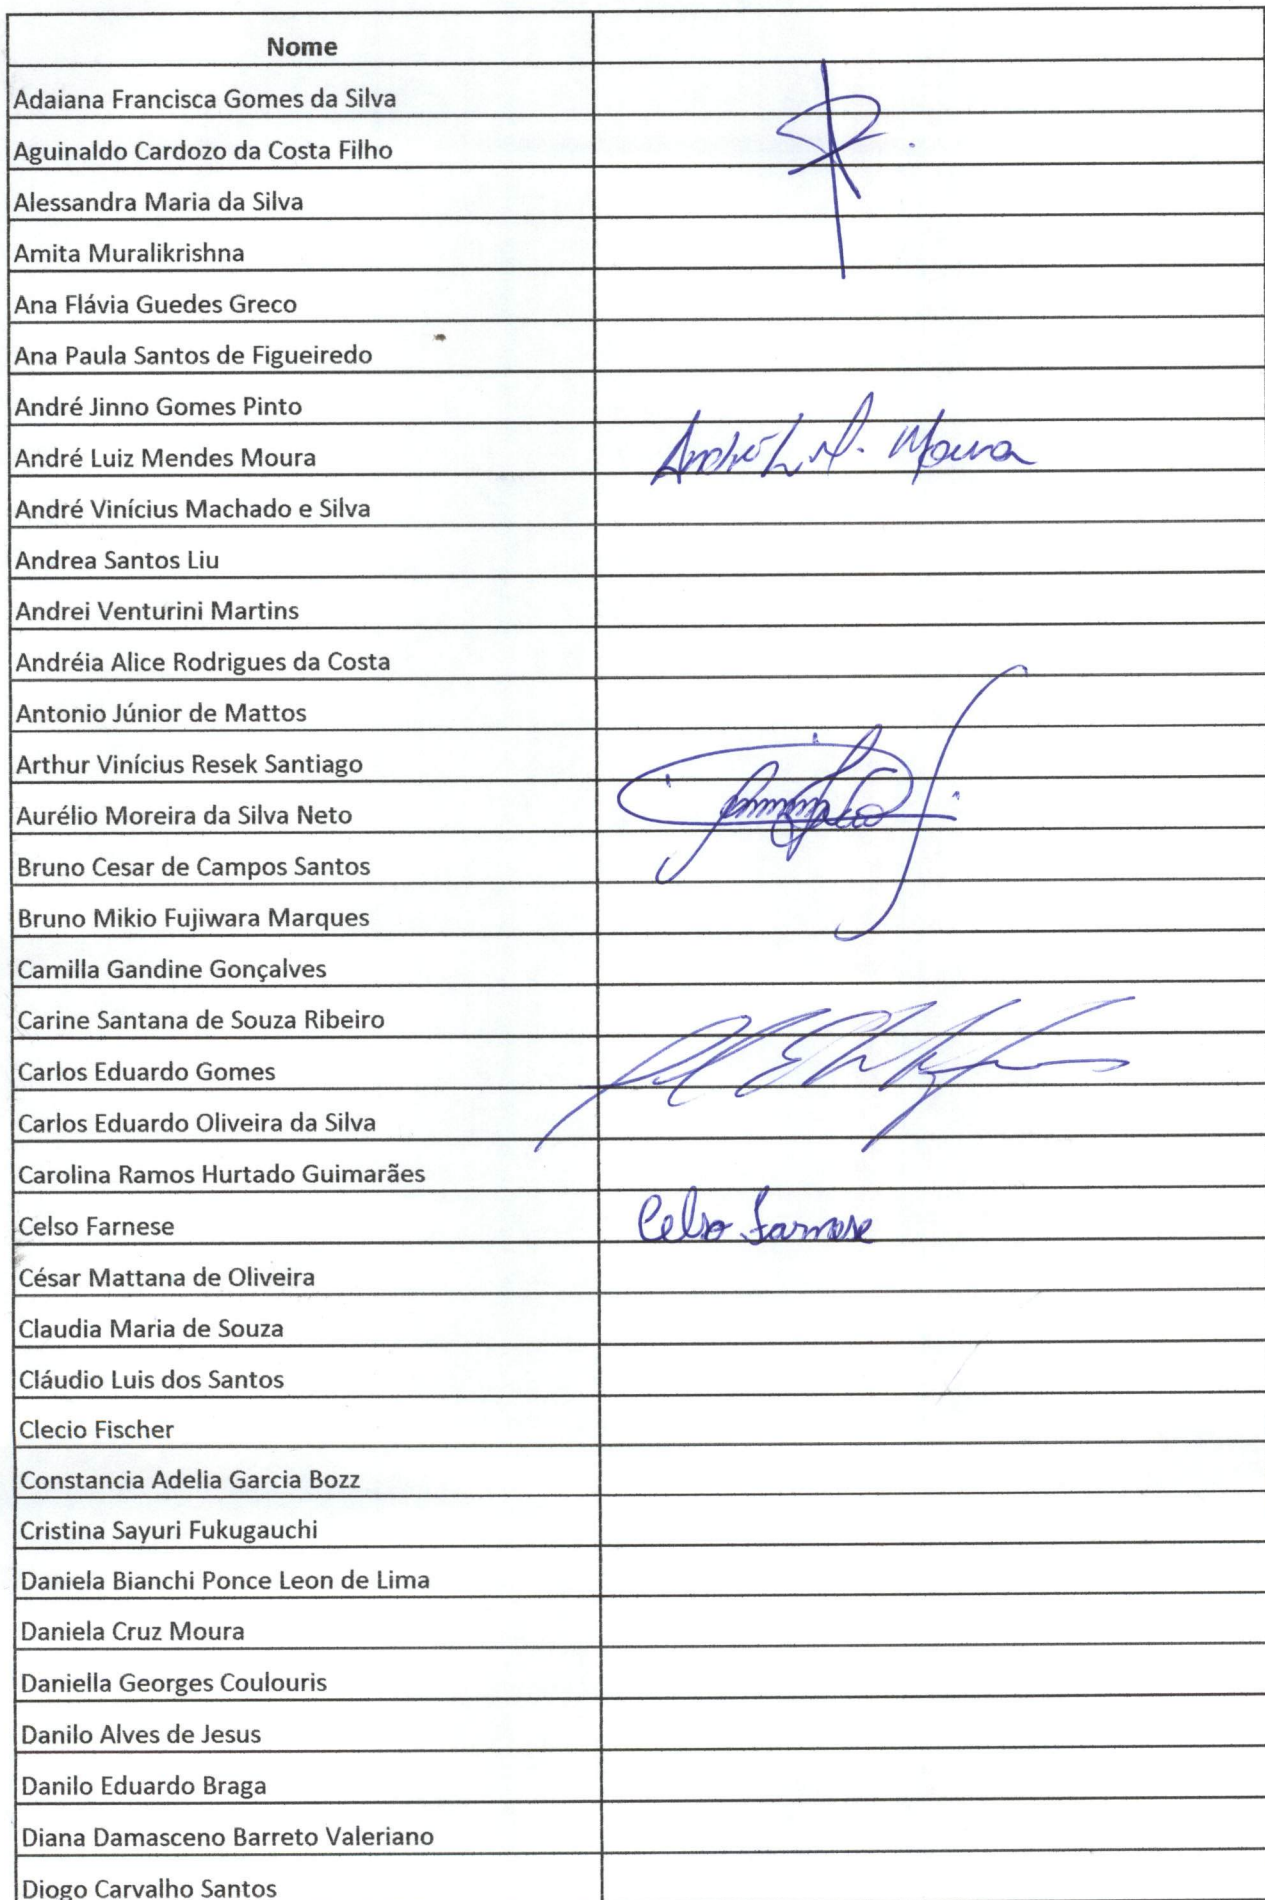 Nome
Adaiana Francisca Gomes da Silva
Aguinaldo Cardozo da Costa Filho
Alessandra Maria da Silva
Amita Muralikrishna
Ana Flávia Guedes Greco
Ana Paula Santos de Figueiredo
André Jinno Gomes Pinto
André Luiz Mendes Moura André L. M. Moura
André Vinícius Machado e Silva
Andrea Santos Liu
Andrei Venturini Martins
Andréia Alice Rodrigues da Costa
Antonio Júnior de Mattos
Arthur Vinícius Resek Santiago
Aurélio Moreira da Silva Neto
Bruno Cesar de Campos Santos
Bruno Mikio Fujiwara Marques
Camilla Gandine Gonçalves
Carine Santana de Souza Ribeiro
Carlos Eduardo Gomes
Carlos Eduardo Oliveira da Silva
Carolina Ramos Hurtado Guimarães
Celso Farnese Celso Farnese
César Mattana de Oliveira
Claudia Maria de Souza
Cláudio Luis dos Santos
Clecio Fischer
Constancia Adelia Garcia Bozz
Cristina Sayuri Fukugauchi
Daniela Bianchi Ponce Leon de Lima
Daniela Cruz Moura
Daniella Georges Coulouris
Danilo Alves de Jesus
Danilo Eduardo Braga
Diana Damasceno Barreto Valeriano
Diogo Carvalho Santos